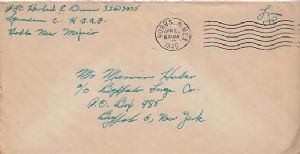 Pfc Herbert E Brown 32613035
Squadron C- H.A.A.F.
Hobbs New Mexico
HOBBS, N.MEX.
1945
Free
Mr Marvin Huber
c/o Buffalo Forge Co.
P.O. Box 985
Buffalo 5, New York